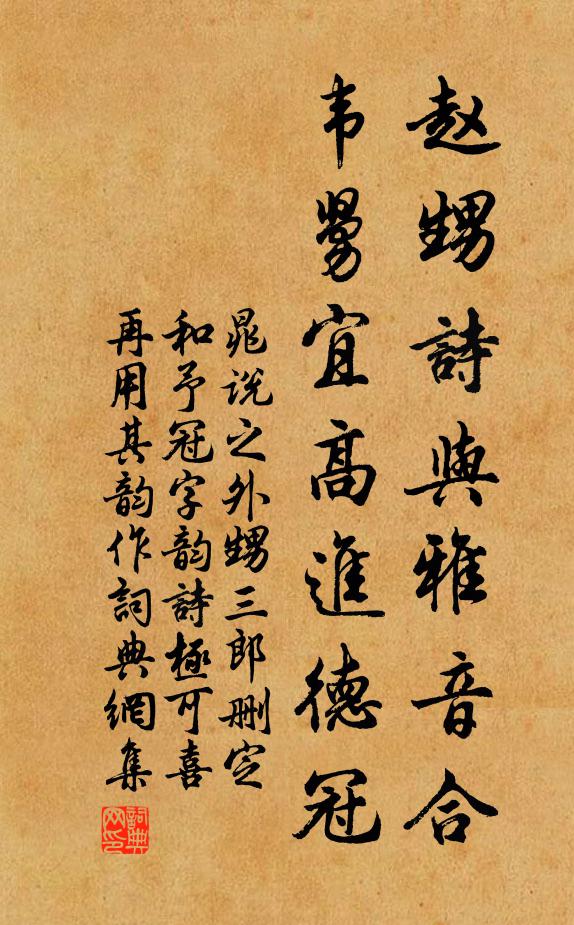 赵甥詩與雅音合
韦舅宜高進德冠
晁说之外甥三郎删定
和予冠字韵詩極可喜
再用其韵作詞典網集
詞典网印